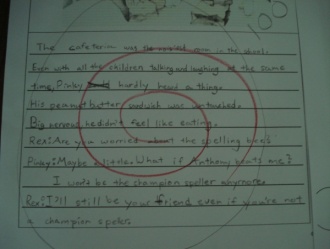 100
The cafeteria was the noisiest room in the school.
Even with all the children talking and laughing at the same
time, Pinky hardly heard a thing.
His peanut butter sandwich was untouched.
Big nervous he didn't feel like eating.
Rex: Are you worried about the spelling bee?
Pinky: Maybe a little. What if Anthony beats me?
I won't be the champion speller anymore.
Rex: I'll still be your friend even if you're not
a champion speller.